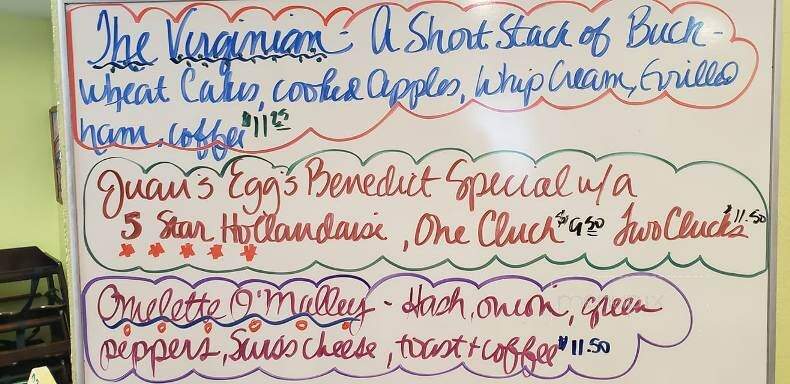 The Virginian - A Short Stack of Buck-
wheat Cakes, cooked Apples, Whip Cream, Grilled
ham, coffee $11.25
Juan's Egg's Benedict Special w/a
5 Star Hollandaise, One Cluck $9.50 Two Clucks $11.50
Omelette O'Malley - Hash, onion, green
peppers, Swiss cheese, toast + coffee $11.50